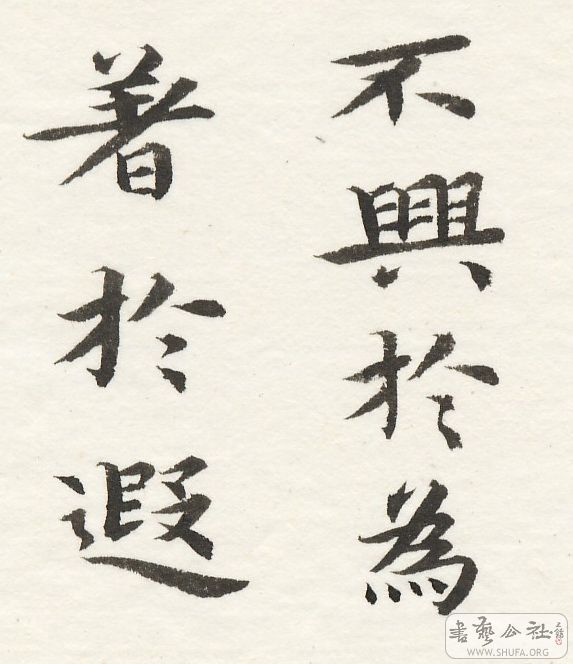 不興於為
著於遐
書藝公社
WWW.SHUFA.ORG